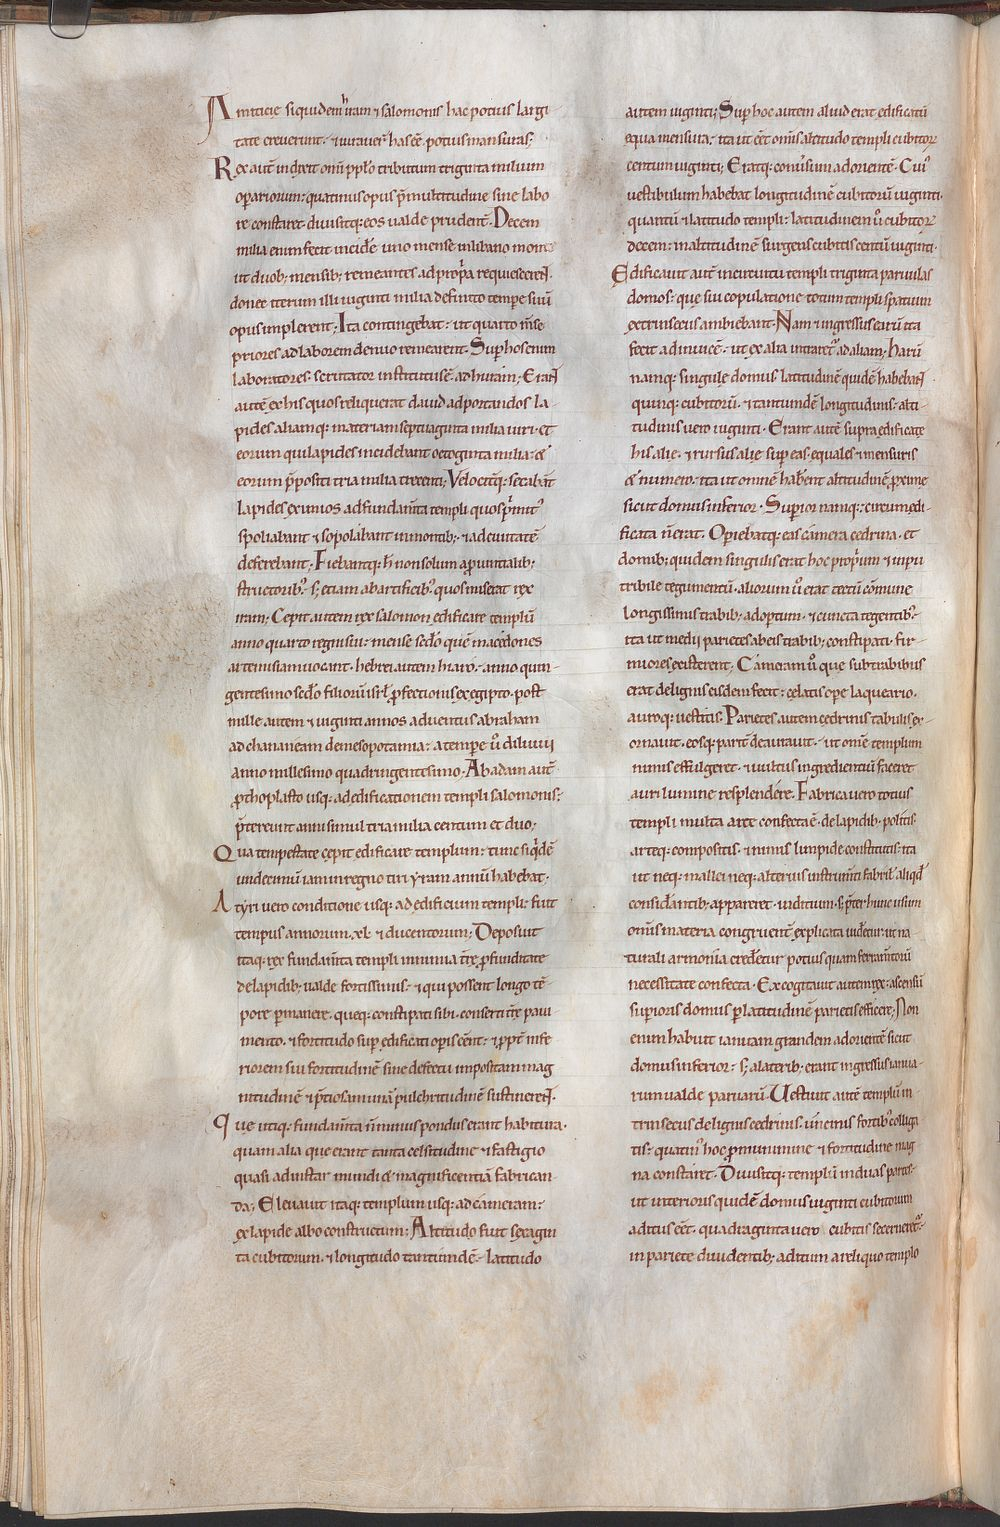 Amicicie siquidem hiram ⁊ salomonis hac potius largi
tate creuerunt. ⁊ iurauer̄ has ēē potius mansuras;
Rex aut̄ indixit om̄i pp̄lo tributum triginta milium
operariorum: quatinus opus p̄ multitudine sine labo
re constaret. diuisitq; eos ualde prudent̄. Decem
milia enim fecit incidē uno mense in libano monte
ut duob; mensib; remeantes ad prop̄a requiescerent.
donec iterum illi uiginti milia definito temp̄e suū
opus implerent; Ita contingebat: ut quarto m̄se
priores ad laborem denuo remearent. Sup̄ hos enim
laboratores. scrutator institutus ē adhuram; Erant
autē ex his quos reliquerat dauid ad portandos la
pides aliamq; materiam septuaginta milia uiri. et
eorum qui lapides incidebant octoginta milia: &
eorum p̄positi tria milia trecenti; Velociq; secabant
lapides eximios ad fundam̄ta templi quos primit;
spoliabant & sopolabant in montib;. ⁊ ad ciuitatē
deferebant; Fiebantq; h̄ non solum a ꝓuintialib;
structorib;. s; etiam ab artificib; quos miserat rex
iram; Cepit autem rex salomon edificare templū
anno quarto regni sui. mense sedo quē macedones
artemisiam uocant. hebrei autem hiarō. anno quin
gentesimo sedo filiorū isrl̄ ꝓfectionis ex egipto. post
mille autem ⁊ uiginti annos aduentus abraham
ad chananeam de mesopotamia: a temp̄e ū diluuii
anno millesimo quadringentesimo. Ab adam aut̄
ꝓthoplasto usq; ad edificationem templi salomonis:
p̄terierunt anni simul tria milia centum et duo;
Qua tempestate cepit edificare templum: tunc siqdē
undecimū iam in regno tiri yram annū habebat.
A tyri uero conditione usq; ad edificium templi: fuit
tempus annorum .xl. ⁊ ducentorum; Deposuit
itaq; rex fundam̄ta templi in nimia t̄re ꝓfunditate
de lapidib; ualde fortissimis. ⁊ qui possent longo tē
pore p̄manere. queq; constipati sibi. conserti t̄re paui
mento. ⁊ fortitudo sup̄edificati op̄is cēnt. ⁊ ꝓpt̄ infe
riorem sui fortitudinē sine defectu impositam mag
nitudinē ⁊ p̄ciosam una pulchritudinē sustinerent.
Que utiq; fundam̄ta n̄ minus pondus erant habitura.
quam alia que erant tanta celsitudine ⁊ fastigio
quasi ad instar mundi & magnificentiā fabrican
da; Eleuauit itaq; templum usq; ad cameram:
ex lapide albo constructum: Altitudo fuit sexagin
ta cubitorum. ⁊ longitudo tantundē. latitudo
autem uiginti; Sup̄ hoc autem aliud erat edificatū
equa mensura. ita ut ēēt om̄is altitudo templi cubitoꝝ
centum uiginti; Eratq; conuersum ad orientē. Cui;
uestibulum habebat longitudinē cubitorū uiginti.
quantū ⁊ latitudo templi: latitudinem ū cubitoꝝ
decem: in altitudinē surgens cubitis centū uiginti.
Edificauit aut̄ in circuitu templi triginta paruulas
domos: que sui copulatione totum templi spatium
extrinsecus ambiebant. Nam ⁊ ingressus earū ita
fecit adinuicē. ut ex alia intraretur ad aliam; Harū
namq; singule domus. latitudinē quidē habebant
quinq; cubitorū. ⁊ tantundē longitudinis. alti
tudinis uero uiginti. Erant autē supra edificate
his alie. ⁊ rursus alie sup̄ eas. equales ⁊ mensuris
& numero. ita ut omnē hab̄ent altitudinē ꝓxime
sicut domus inferior. Sup̄ior namq; circumedi
ficata n̄ erat. Op̄iebatq; eas camera cedrina. et
domib; quidem singulis erat hoc prop̄ium ⁊ inpu
tribile tegumentū. aliorum ū erat tectū cōmune
longissimis trabib; adoptum. ⁊ cuncta tegentib;.
ita ut medii parietes abeis trabib; constipati. fir
miores existerent; Cameram ū que sub trabibus
erat de lignis eisdem fecit: celatis ope laqueario.
auroq; uestitis. Parietes autem cedrinis tabulis ex
ornauit. eosq; parit̄ deaurauit. ut om̄e templum
nimis effulgeret. ⁊ uultus ingredientiū faceret
auri lumine resplendere. Fabrica uero totius
templi multa arte confecta ē. de lapidib; politis.
arteq; compositis. ⁊ nimis limpide constitutis. ita
ut neq; mallei neq; alterius instrum̄ti fabril; aliqd
considantib; appareret. inditium. s; p̄ter hunc usum
om̄is materia congruent̄ explicata uidetur. ut na
turali armonia credetur potius quam ferram̄torū
necessitate confecta. Excogitauit autem rex: ascensū
sup̄ioris domus p̄ latitudinē parietis efficere; Non
enim habuit ianuam grandem ad orientē sicut
domus inferior: s; a laterib; erant ingressus ianua
rum ualde paruarū. Vestiuit autē templū in
trinsecus de lignis cedrinis. uncinis fortib; colliga
tis: quatin; hoc ꝓ munimine ⁊ fortitudine mag
na constaret. Diuisitq; templū in duas partes.
ut interioris quidē domus uiginti cubitorum
aditus ēēt. quadraginta uero cubitis secerneret.
in pariete diuidentib; aditum a reliquo templo